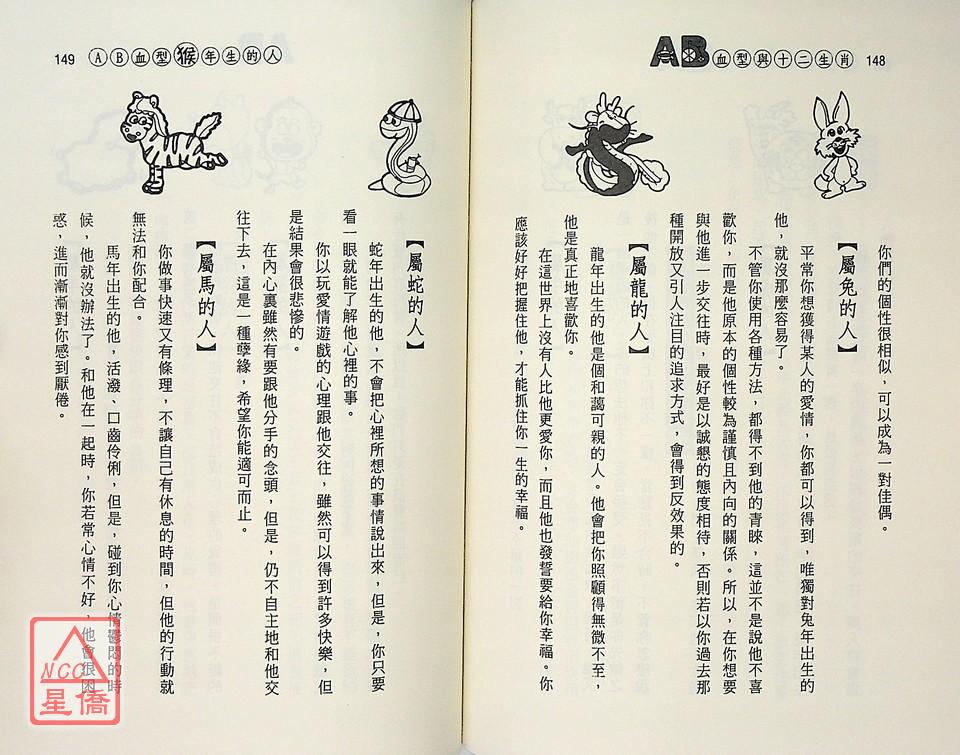 AB血型與十二生肖 148
你們的個性很相似，可以成為一對佳偶。
【屬兔的人】
平常你想獲得某人的愛情，你都可以得到，唯獨對兔年出生的
他，就沒那麼容易了。
不管你使用各種方法，都得不到他的青睞，這並不是說他不喜
歡你，而是他原本的個性較為謹慎且內向的關係。所以，在你想要
與他進一步交往時，最好是以誠懇的態度相待，否則若以你過去那
種開放又引人注目的追求方式，會得到反效果的。
【屬龍的人】
龍年出生的他是個和藹可親的人。他會把你照顧得無微不至，
他是真正地喜歡你。
在這世界上沒有人比他更愛你，而且他也發誓要給你幸福。你
應該好好把握住他，才能抓住你一生的幸福。
149 AB血型猴年生的人
【屬蛇的人】
蛇年出生的他，不會把心裡所想的事情說出來，但是，你只要
看一眼就能了解他心裡的事。
你以玩愛情遊戲的心理跟他交往，雖然可以得到許多快樂，但
是結果會很悲慘的。
在內心裏雖然有要跟他分手的念頭，但是，仍不自主地和他交
往下去，這是一種孽緣，希望你能適可而止。
【屬馬的人】
你做事快速又有條理，不讓自己有休息的時間，但他的行動就
無法和你配合。
馬年出生的他，活潑、口齒伶俐，但是，碰到你心情鬱悶的時
候，他就沒辦法了。和他在一起時，你若常心情不好，他會很困
惑，進而漸漸對你感到厭倦。
NCC
星僑